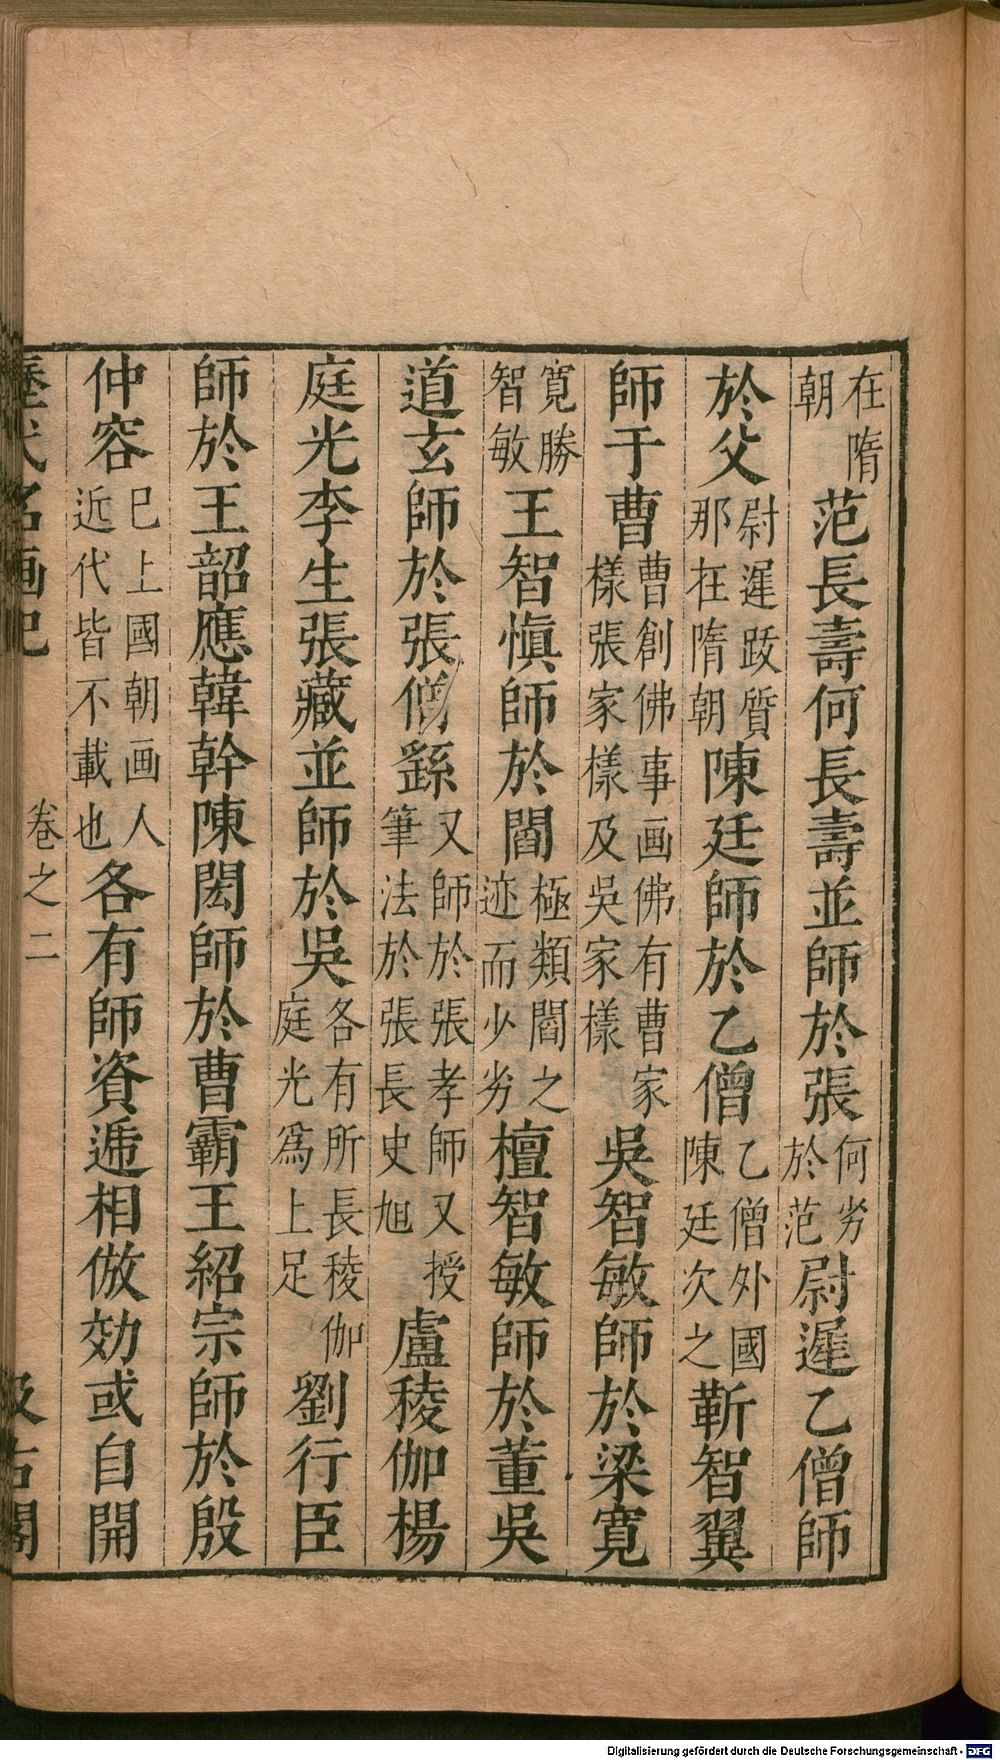 在隋朝范長壽何長壽並師於張何劣於范尉遲乙僧師
於父尉遲跋質那在隋朝陳廷師於乙僧乙僧外國陳廷次之靳智翼
師于曹曹創佛事画佛有曹家樣張家樣及吳家樣吳智敏師於梁寬
寬勝智敏王智慎師於閻極類閻之迹而少劣檀智敏師於董吳
道玄師於張僧繇又師於張孝師又授筆法於張長史旭盧稜伽楊
庭光李生張藏並師於吳各有所長稜伽庭光爲上足劉行臣
師於王韶應韓幹陳閎師於曹霸王紹宗師於殷
仲容已上國朝画人近代皆不載也各有師資遞相倣効或自開
歷代名画記 卷之二 汲古閣
Digitalisierung gefördert durch die Deutsche Forschungsgemeinschaft - DFG